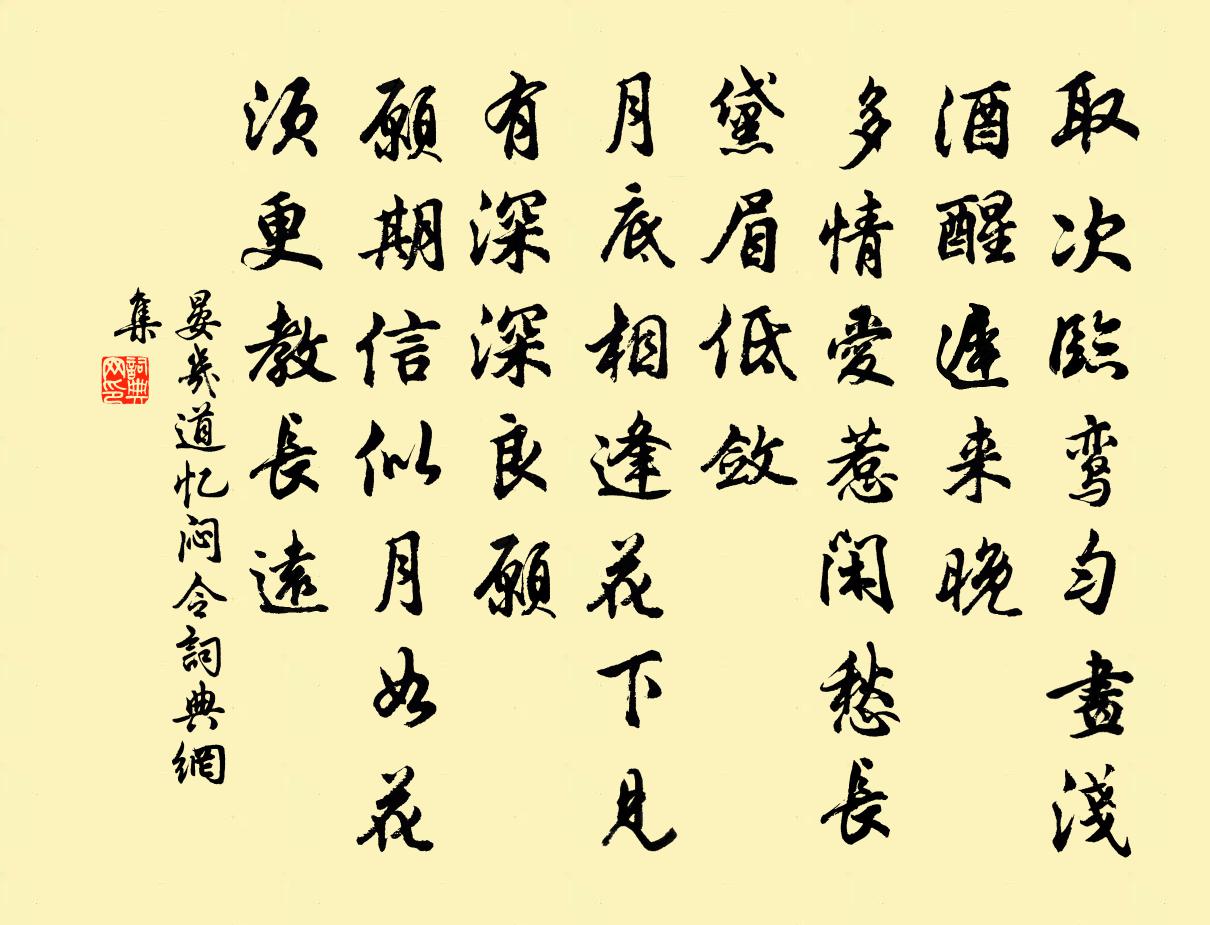 取次臨鸞勻畫淺
酒醒遲来晚
多情愛惹閑愁長
黛眉低斂
月底相逢花下見
有深深良願
願期信似月如花
須更教長遠
晏幾道忆闷令詞典網
集
詞典网印